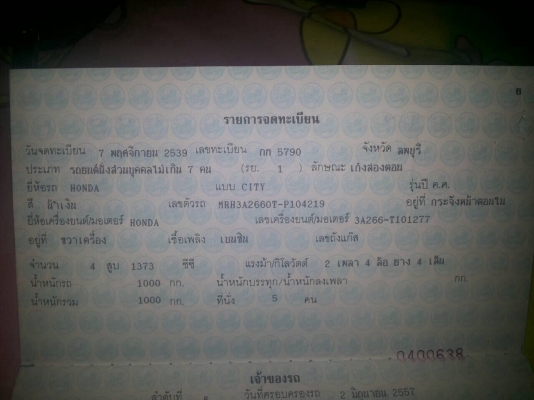 8
รายการจดทะเบียน
วันจดทะเบียน 7 พฤศจิกายน 2539 เลขทะเบียน กก 5790 จังหวัด ลพบุรี
ประเภท รถยนต์นั่งส่วนบุคคลไม่เกิน 7 คน (รย. 1 ) ลักษณะ เก๋งสองตอน
ยี่ห้อรถ HONDA แบบ CITY รุ่นปี ค.ศ.
สี ฟ้าเงิน เลขตัวรถ MRH3A2660T-P104219 อยู่ที่ กระจังหน้าตอนใน
ยี่ห้อเครื่องยนต์/มอเตอร์ HONDA เลขเครื่องยนต์/มอเตอร์ 3A266-T101277
อยู่ที่ ขวาเครื่อง เชื้อเพลิง เบนซิน เลขถังแก๊ส
จำนวน 4 สูบ 1373 ซีซี แรงม้า/กิโลวัตต์ 2 เพลา 4 ล้อ ยาง 4 เส้น
น้ำหนักรถ 1000 กก. น้ำหนักบรรทุก/น้ำหนักลงเพลา กก.
น้ำหนักรวม 1000 กก. ที่นั่ง 5 คน
0400638
เจ้าของรถ
ลำดับที่ วันที่ครอบครองรถ 2 มิถุนายน 2557